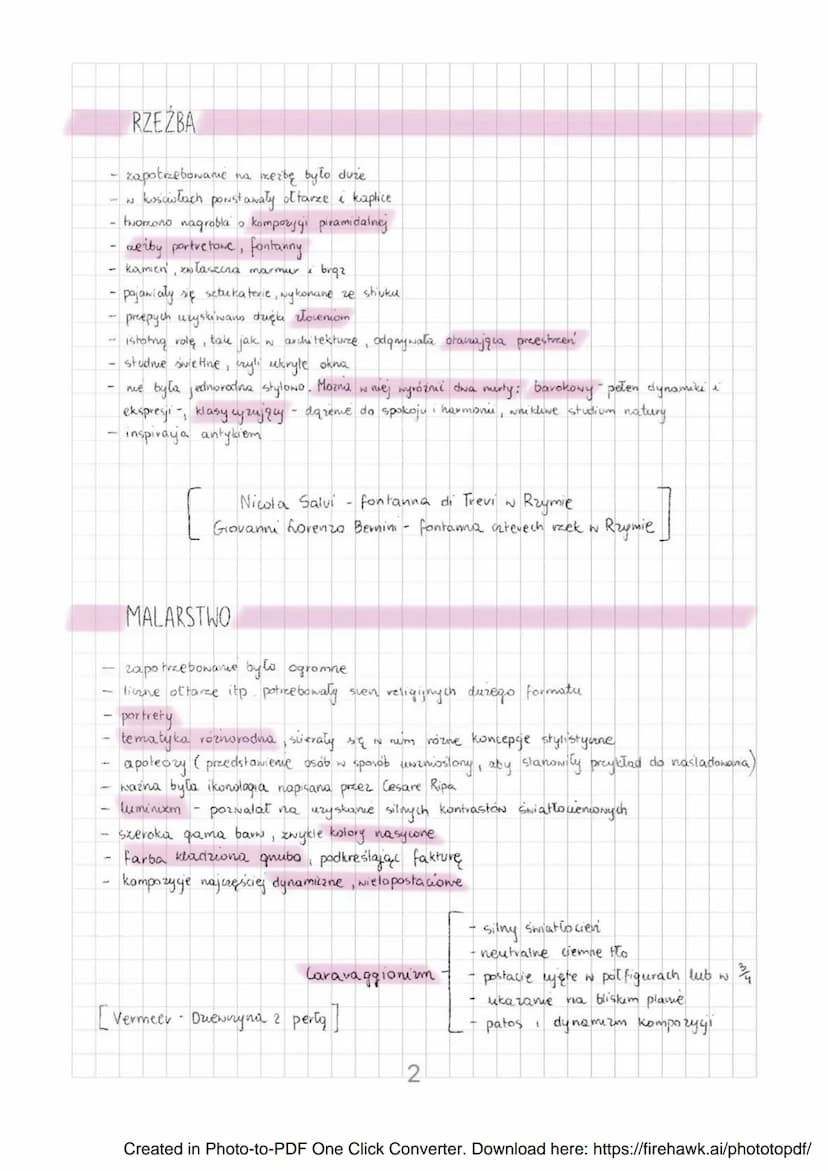 RZEŹBA
- zapotrzebowanie na rzeźbę było duże
- w kościołach powstawały ołtarze i kaplice
- tworzono nagrobki o kompozycji piramidalnej
- rzeźby portretowe, fontanny
- kamień, zwłaszcza marmur i brąz
- pojawiały się sztukaterie, wykonane ze stiuku
- przepych uzyskiwano dzięki złoceniom
- istotną rolę, tak jak w architekturze, odgrywała otaczająca przestrzeń
- studnie świetlne, czyli ukryte okna
- nie była jednorodna stylowo. Można w niej wyróżnić dwa nurty: barokowy - pełen dynamiki i
ekspresji -, klasycyzujący - dążenie do spokoju i harmonii, wnikliwe studium natury
- inspiracja antykiem
[ Nicola Salvi - fontanna di Trevi w Rzymie
Giovanni Lorenzo Bernini - fontanna czterech rzek w Rzymie ]
MALARSTWO
- zapotrzebowanie było ogromne
- liczne ołtarze itp. potrzebowały scen religijnych dużego formatu
- portrety
- tematyka różnorodna, ścierały się w nim różne koncepcje stylistyczne
- apoteozy ( przedstawienie osób w sposób uwznioślony, aby stanowiły przykład do naśladowania)
- ważna była ikonologia napisana przez Cesare Ripa
- luminizm - pozwalał na uzyskanie silnych kontrastów światłocieniowych
- szeroka gama barw, zwykle kolory nasycone
- farba kładziona grubo, podkreślając fakturę
- kompozycje najczęściej dynamiczne, wielopostaciowe
Caravaggionizm
- silny światłocień
- neutralne ciemne tło
- postacie ujęte w półfigurach lub w 3/4
- ukazanie na bliskim planie
- patos i dynamizm kompozycji
[ Vermeer - Dziewczyna z perłą ]
2
Created in Photo-to-PDF One Click Converter. Download here: https://firehawk.ai/phototopdf/